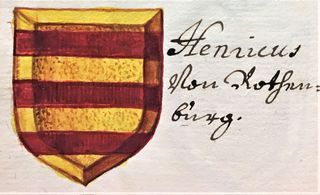 Henricus
Von Rothen-
bürg.